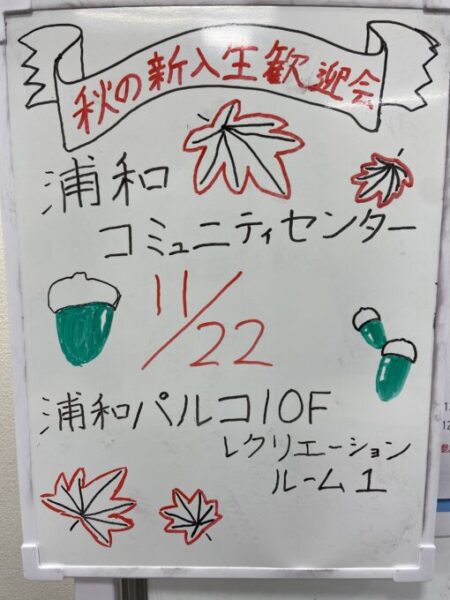 秋の新入生歓迎会
浦和
コミュニティセンター
11/22
浦和パルコ10F
レクリエーション
ルーム1